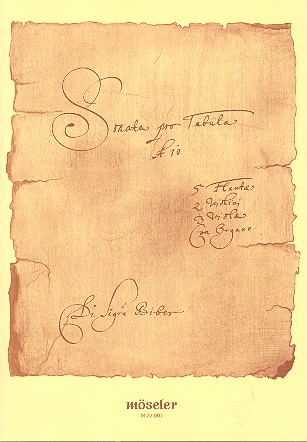 Sonata pro Tabula
à 10
5 Flautæ
2 Violini
3 Viola
Con Organo
Di Sigre Biber
möseler
M 22.007